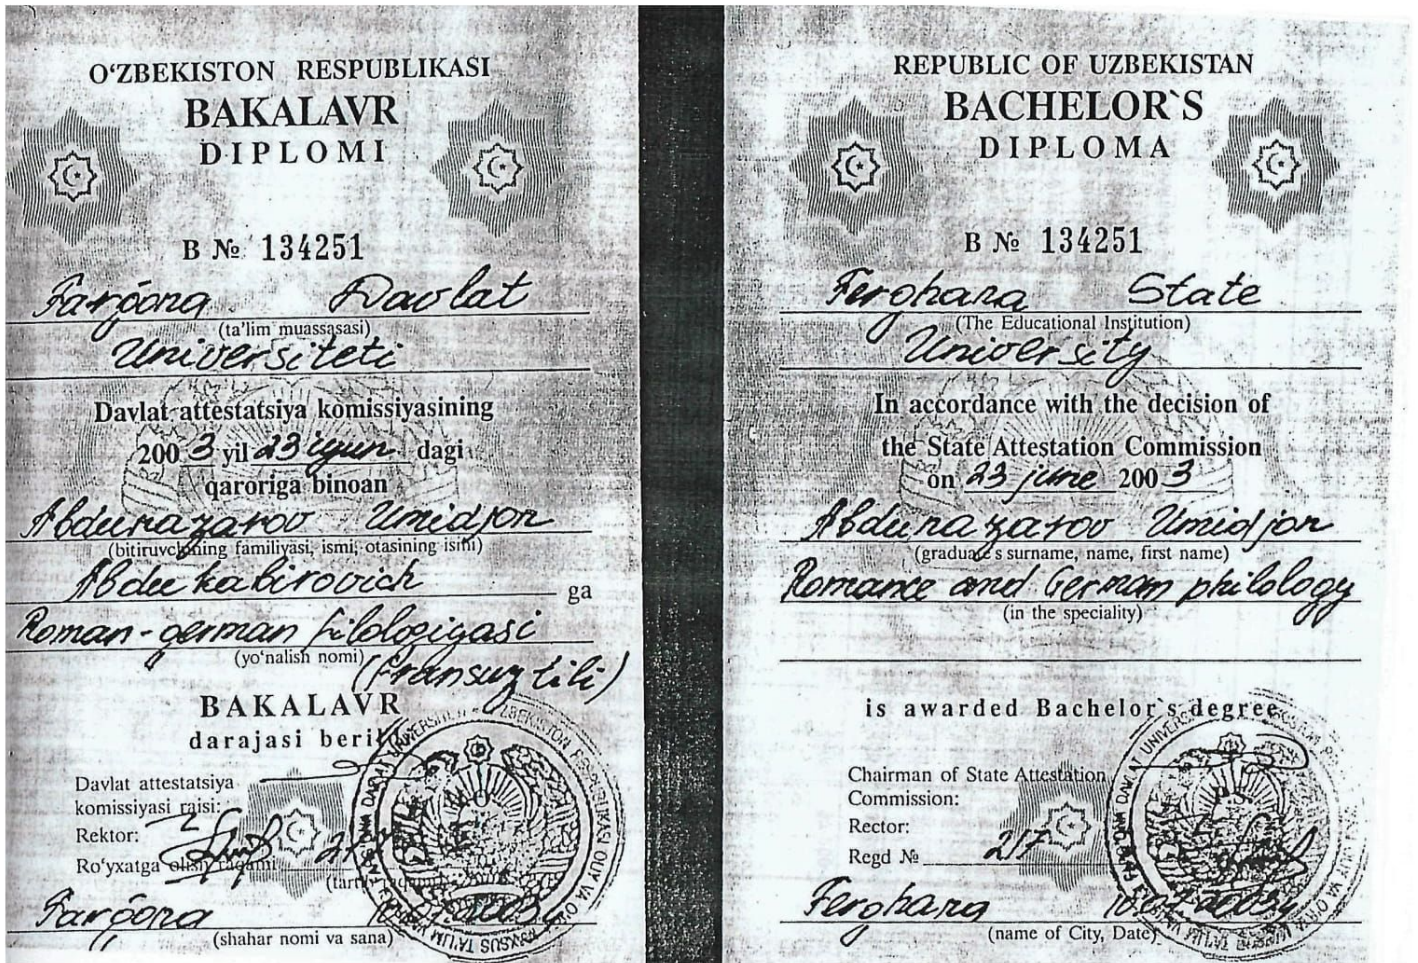 O‘ZBEKISTON RESPUBLIKASI
BAKALAVR
DIPLOMI
B № 134251
Farg'ona Davlat
(ta'lim muassasasi)
Universiteti
Davlat attestatsiya komissiyasining
2003 yil 23 iyun dagi
qaroriga binoan
Abdunazarov Umidjon
(bitiruvchining familiyasi, ismi, otasining ismi)
Abdukabirovich ga
Roman-german filologiyasi
(yo‘nalish nomi)
(fransuz tili)
BAKALAVR
darajasi
Davlat attestatsiya
komissiyasi raisi:
Rektor:
Ro‘yxatga olish raqami
Farg'ona
(shahar nomi va sana)
REPUBLIC OF UZBEKISTAN
BACHELOR`S
DIPLOMA
B № 134251
Ferghana State
(The Educational Institution)
University
In accordance with the decision of
the State Attestation Commission
on 23 june 2003
Abdunazarov Umidjon
(graduate's surname, name, first name)
Romance and German philology
(in the speciality)
is awarded Bachelor`s degree
Chairman of State Attestation
Commission:
Rector:
Regd № 217
P.S.
Ferghana
(name of City, Date)